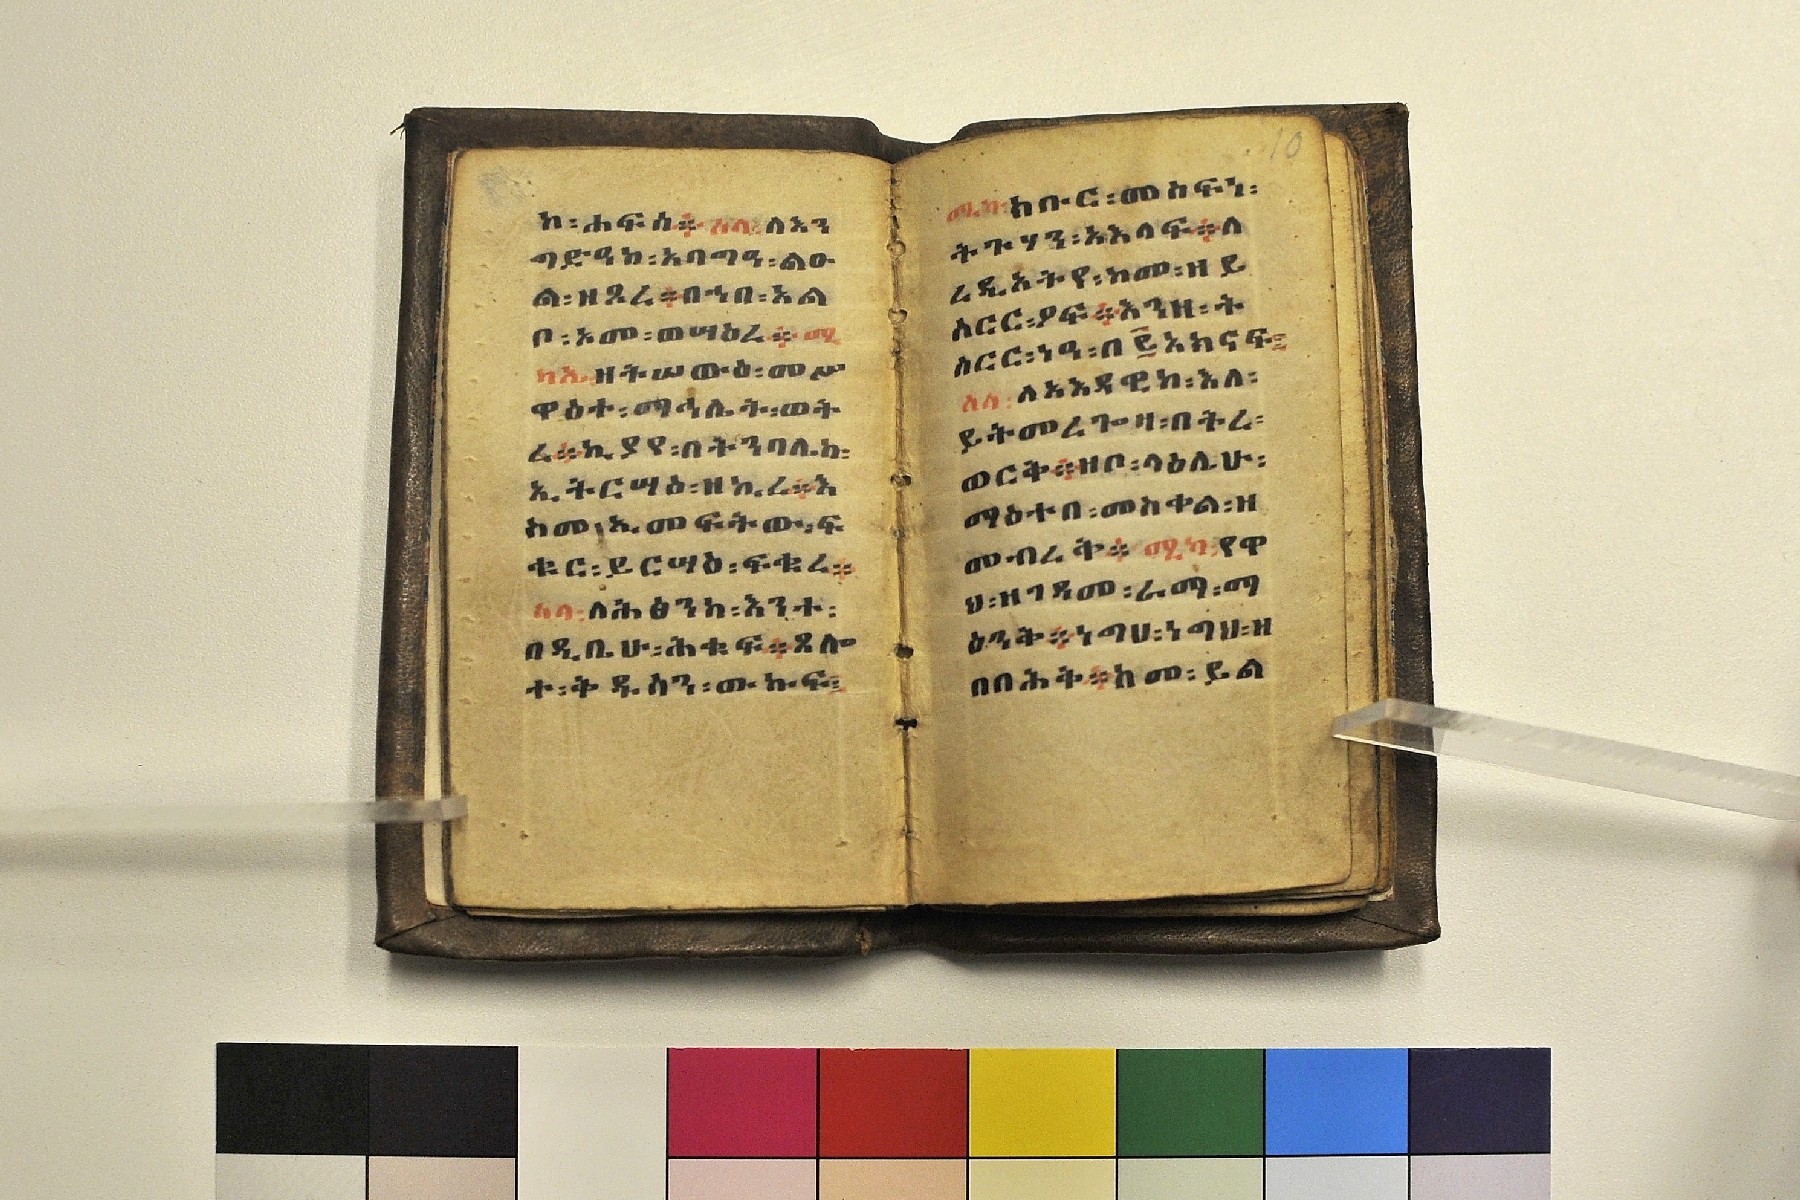 ኮ፡ሐፍሰ፨ሰላ፡ለእን
ግድዓከ፡አባግዓ፡ልዑ
ል፡ዘጸረ፨በኀበ፡አል
ቦ፡አመ፡ወሣዕረ፨ሚ
ካኤ፡ዘትሠውዕ፡መሥ
ዋዕተ፡ማኅሌት፡ወት
ረ፨ኪያየ፡በትንባሌከ፡
ኢትርሣዕ፡ዘኪረ፨እ
ስመ፡ኢመፍትው፡ፍ
ቁር፡ይርሣዕ፡ፍቁረ፨
ሰላ፡ለሕፅንከ፡እንተ፡
በዲቤሁ፡ሕቁፍ፨ጸሎ
ተ፡ቅዱሳን፡ውኩፍ፨
10
ሚካ፡ክቡር፡መስፍነ፡
ትጉሃን፡አእላፍ፨ለ
ረዲኦትየ፡ከመ፡ዘይ
ሰርር፡ዖፍ፨እንዘ፡ት
ሰርር፡ነዓ፡በ፪አክናፍ፨
ሰላ፡ለአእዳዊከ፡እለ፡
ይትመረጐዛ፡በትረ፡
ወርቅ፨ዘቦ፡ላዕሌሁ፡
ማዕተበ፡መስቀል፡ዘ
መብረቅ፨ሚካ፡የዋ
ህ፡ዘገዳመ፡ራማ፡ማ
ዕንቅ፨ነግሀ፡ነግህ፡ዘ
በበሕቅ፨ከመ፡ይል